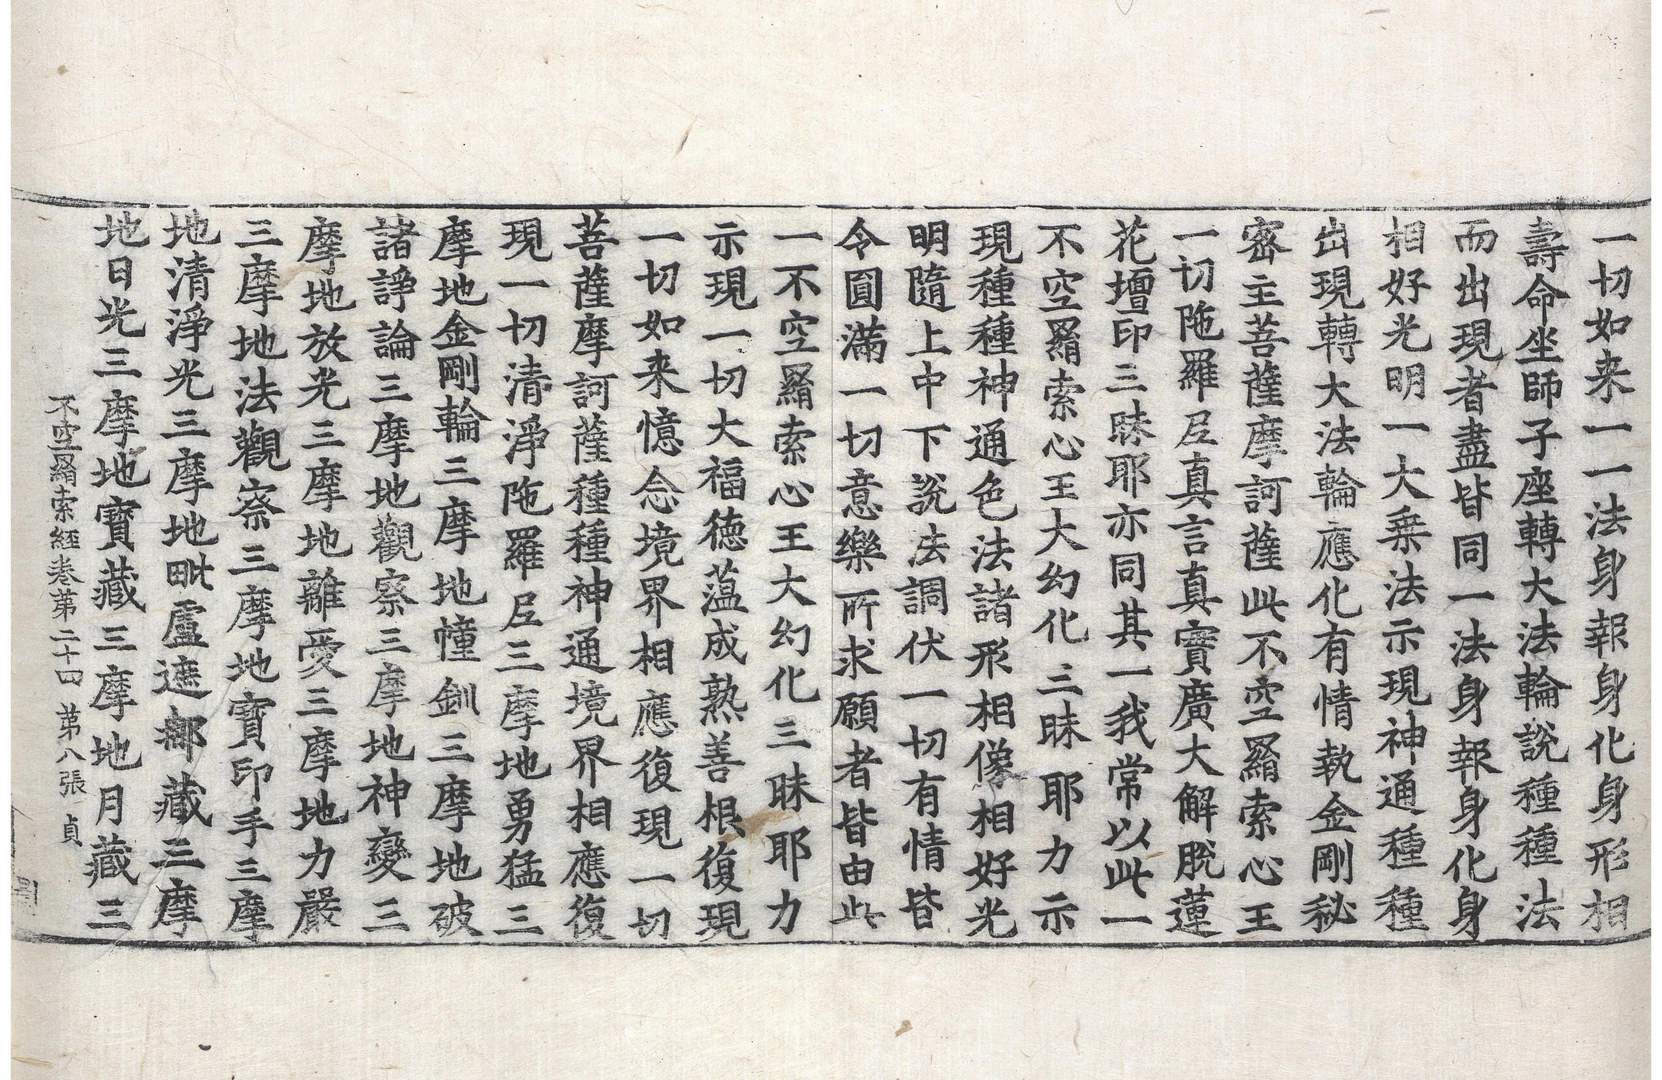 一切如来一一法身報身化身形相
壽命坐師子座轉大法輪說種種法
而出現者盡皆同一法身報身化身
相好光明一大乗法示現神通種種
出現轉大法輪應化有情執金剛秘
密主菩薩摩訶薩此不空羂索心王
一切陁羅尼真言真實廣大解脫蓮
花壇印三昧耶亦同其一我常以此一
不空羂索心王大幻化三昧耶力示
現種種神通色法諸形相像相好光
明隨上中下說法調伏一切有情皆
令圓滿一切意樂所求願者皆由此
一不空羂索心王大幻化三昧耶力
示現一切大福德蕰成熟善根復現
一切如来憶念境界相應復現一切
菩薩摩訶薩種種神通境界相應復
現一切清淨陁羅尼三摩地勇猛三
摩地金剛輪三摩地幢釧三摩地破
諸諍論三摩地觀察三摩地神變三
摩地放光三摩地離愛三摩地力嚴
三摩地法觀察三摩地寶印手三摩
地清淨光三摩地毗盧遮㢠藏三摩
地日光三摩地寶藏三摩地月藏三
不空羂索經卷第二十四 第八張 貞